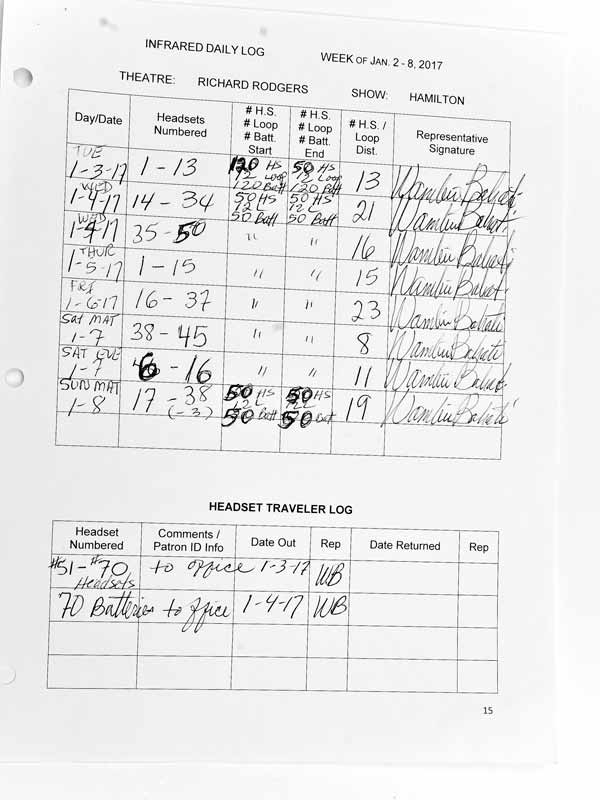 INFRARED DAILY LOG WEEK OF JAN. 2 - 8, 2017
THEATRE: RICHARD RODGERS SHOW: HAMILTON
Day/Date Headsets Numbered # H.S. # Loop # Batt. Start # H.S. # Loop # Batt. End # H.S. / Loop Dist. Representative Signature
TUE 1-3-17 1-13 120 HS 12 Loop 120 Batt 50 HS 12 Loop 120 Batt 13
WED 1-4-17 14-34 50 HS 12 L 50 Batt 50 HS 12 L 50 Batt 21
WED 1-4-17 35-50 " " 16
THUR 1-5-17 1-15 " " 15
FRI 1-6-17 16-37 " " 23
Sat MAT 1-7 38-45 " " 8
SAT EVE 1-7 6-16 " " 11
SUN MAT 1-8 17-38 (-3) 50 HS 12 L 50 Batt 50 HS 12 L 50 Batt 19
HEADSET TRAVELER LOG
Headset Numbered Comments / Patron ID Info Date Out Rep Date Returned Rep
#51-#70 Headsets to office 1-3-17 WB
70 Batteries to office 1-4-17 WB
15